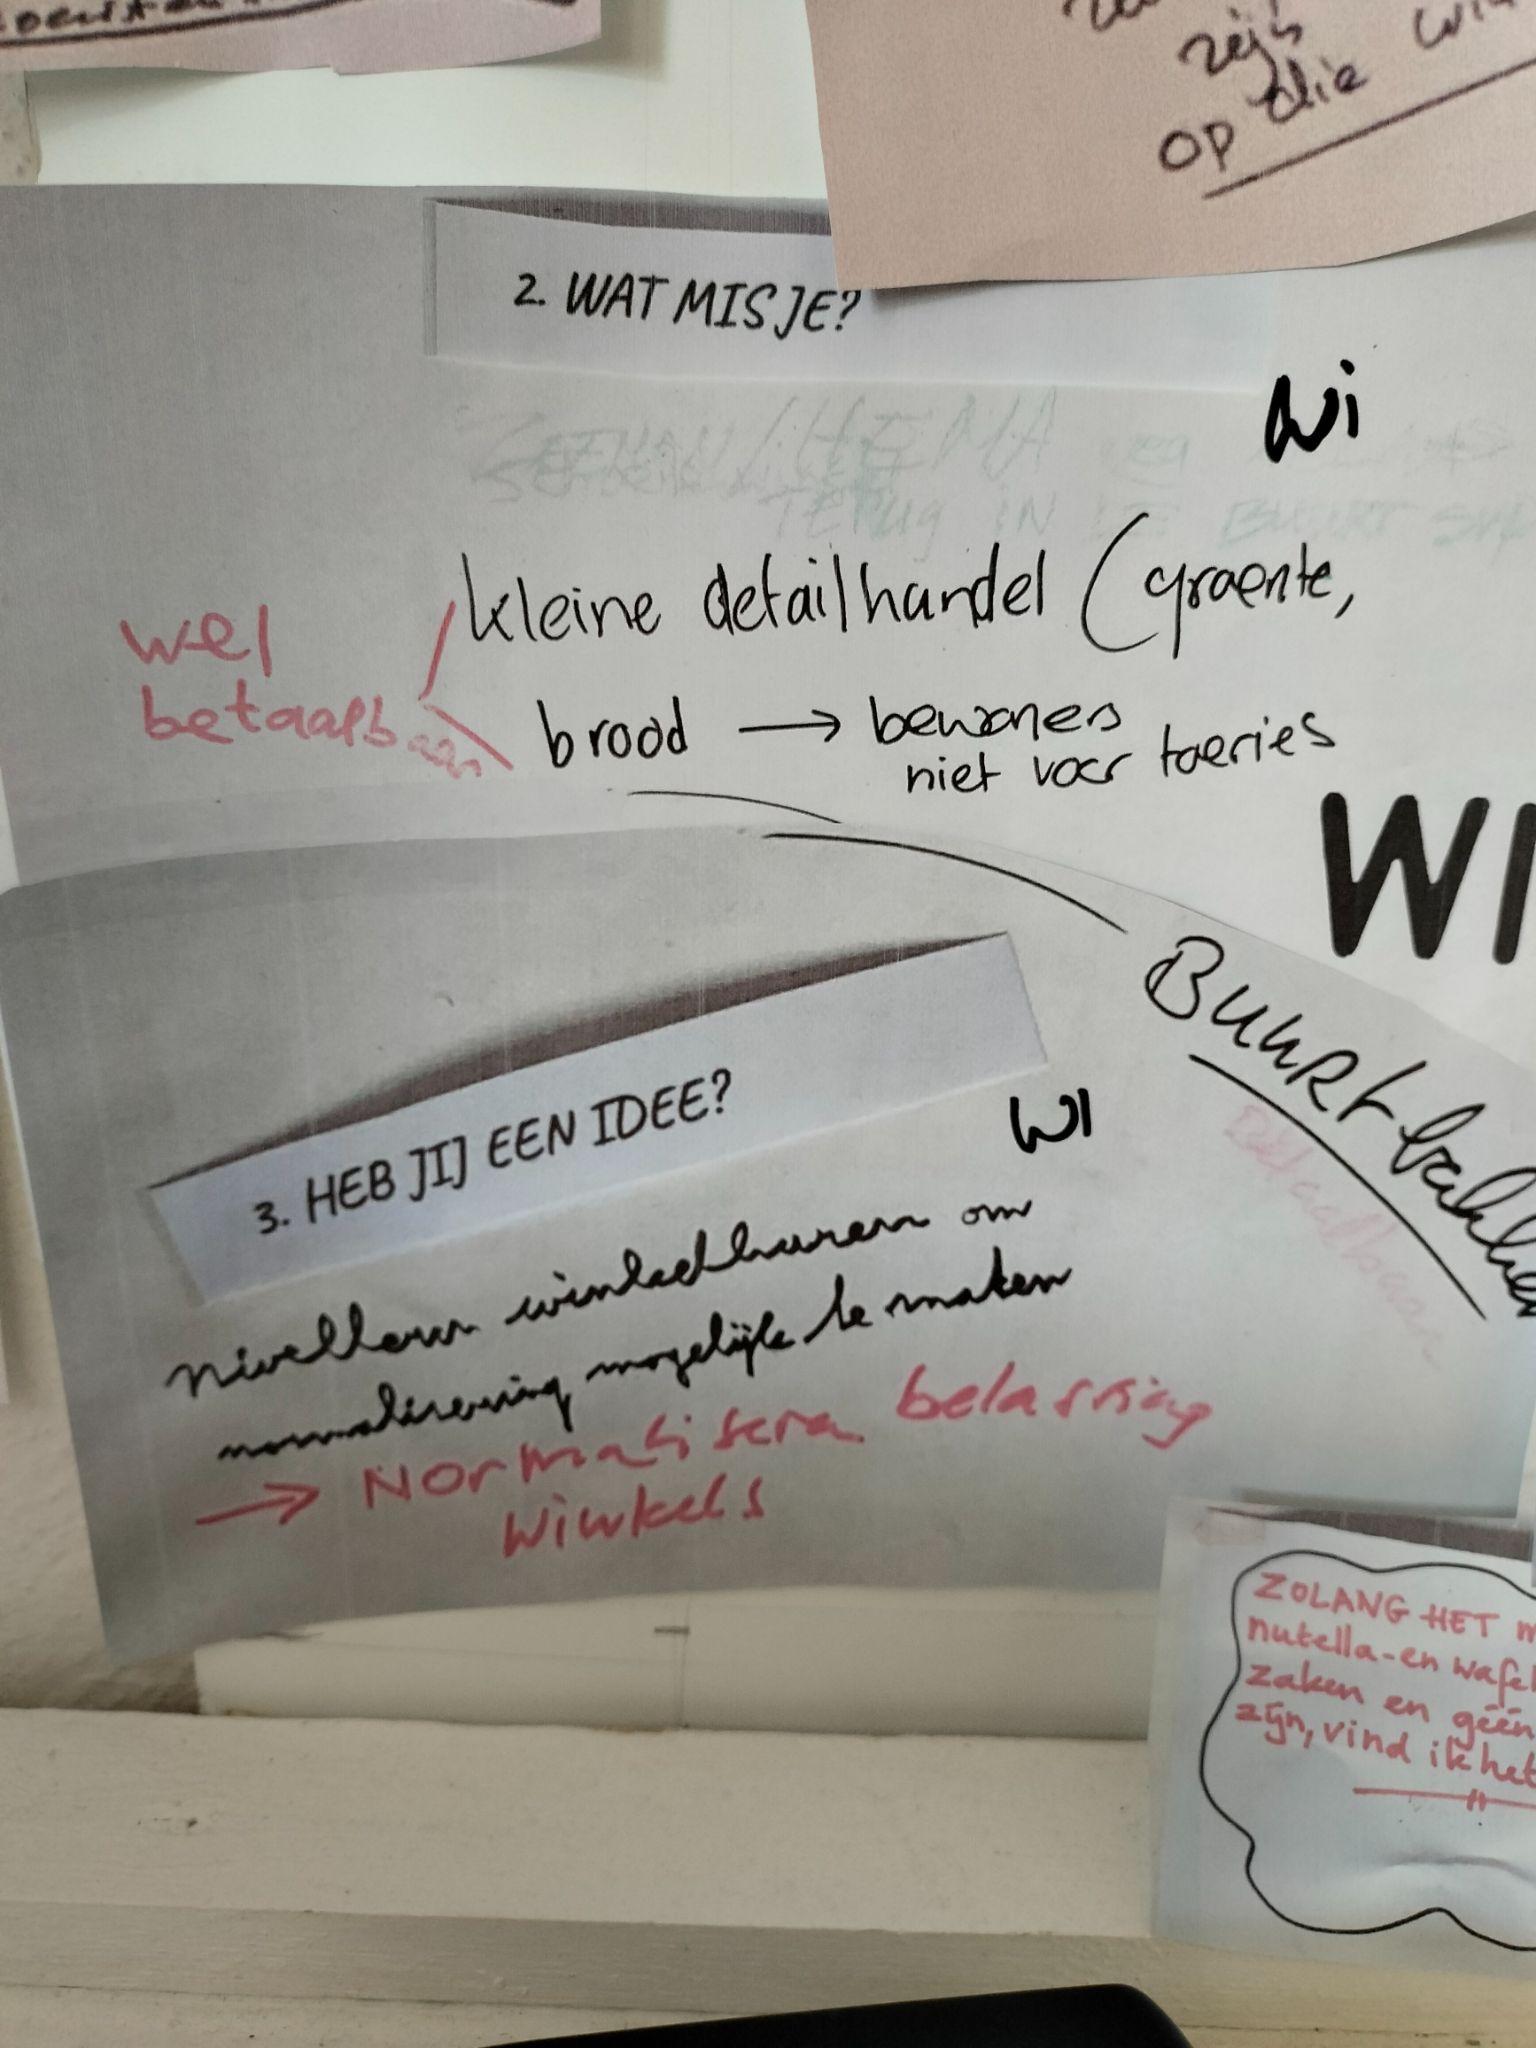 zijn
op die
2. WAT MIS JE?
WI
HEMA
TERUG IN DE BUURT
kleine detailhandel (groente,
wel
betaalbaar
brood → bewoners
niet voor toeries
WI
Buurtbakker
Betaalbaar
3. HEB JIJ EEN IDEE?
WI
Nivelleren winkelhuren om
normalisering mogelijk te maken
→ Normaliseren belasting
winkels
ZOLANG HET
nutella-en wafel
zaken en géén
zijn, vind ik het